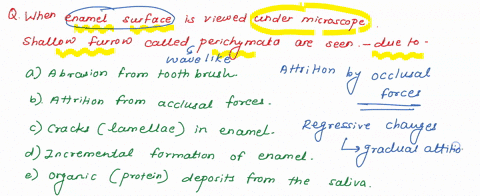 Q. When enamel surface is viewed under microscope.
Shallow furrow called perichymata are seen. - due to-
wave like
a) Abrasion from tooth brush.
b) Attrition from acclusal forces.
c) Cracks (lamellae) in enamel.
d) Incremental formation of enamel.
e) Organic (protein) deposits from the saliva.
Attrition by occlusal
forces
Regressive changes
↳ gradual attitio